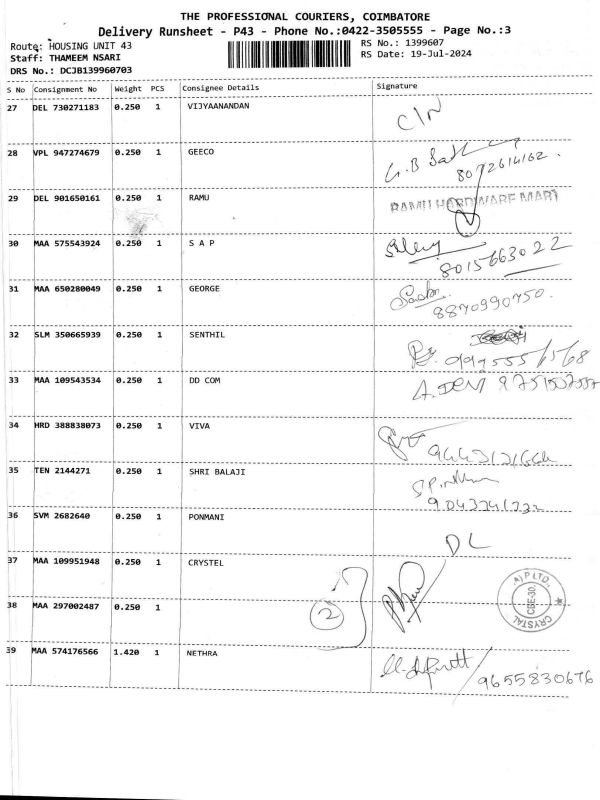 THE PROFESSIONAL COURIERS, COIMBATORE
Delivery Runsheet - P43 - Phone No.:0422-3505555 - Page No.:3
Route: HOUSING UNIT 43 RS No.: 1399607
Staff: THAMEEM NSARI RS Date: 19-Jul-2024
DRS No.: DCJB139960703
S No Consignment No Weight PCS Consignee Details Signature
27 DEL 730271183 0.250 1 VIJYAANANDAN
C/N
28 VPL 947274679 0.250 1 GEECO
8072614162.
29 DEL 901650161 0.250 1 RAMU RAMU HARDWARE MART
30 MAA 575543924 0.250 1 S A P
8015663022
31 MAA 650280049 0.250 1 GEORGE
8870990750.
32 SLM 350665939 0.250 1 SENTHIL
33 MAA 109543534 0.250 1 DD COM
34 HRD 388838073 0.250 1 VIVA
35 TEN 2144271 0.250 1 SHRI BALAJI
36 SVM 2682640 0.250 1 PONMANI
DL
37 MAA 109951948 0.250 1 CRYSTEL
A) P LTD.
CBE-30.
CRYSTAL
38 MAA 297002487 0.250 1
2
39 MAA 574176566 1.420 1 NETHRA
9655830676